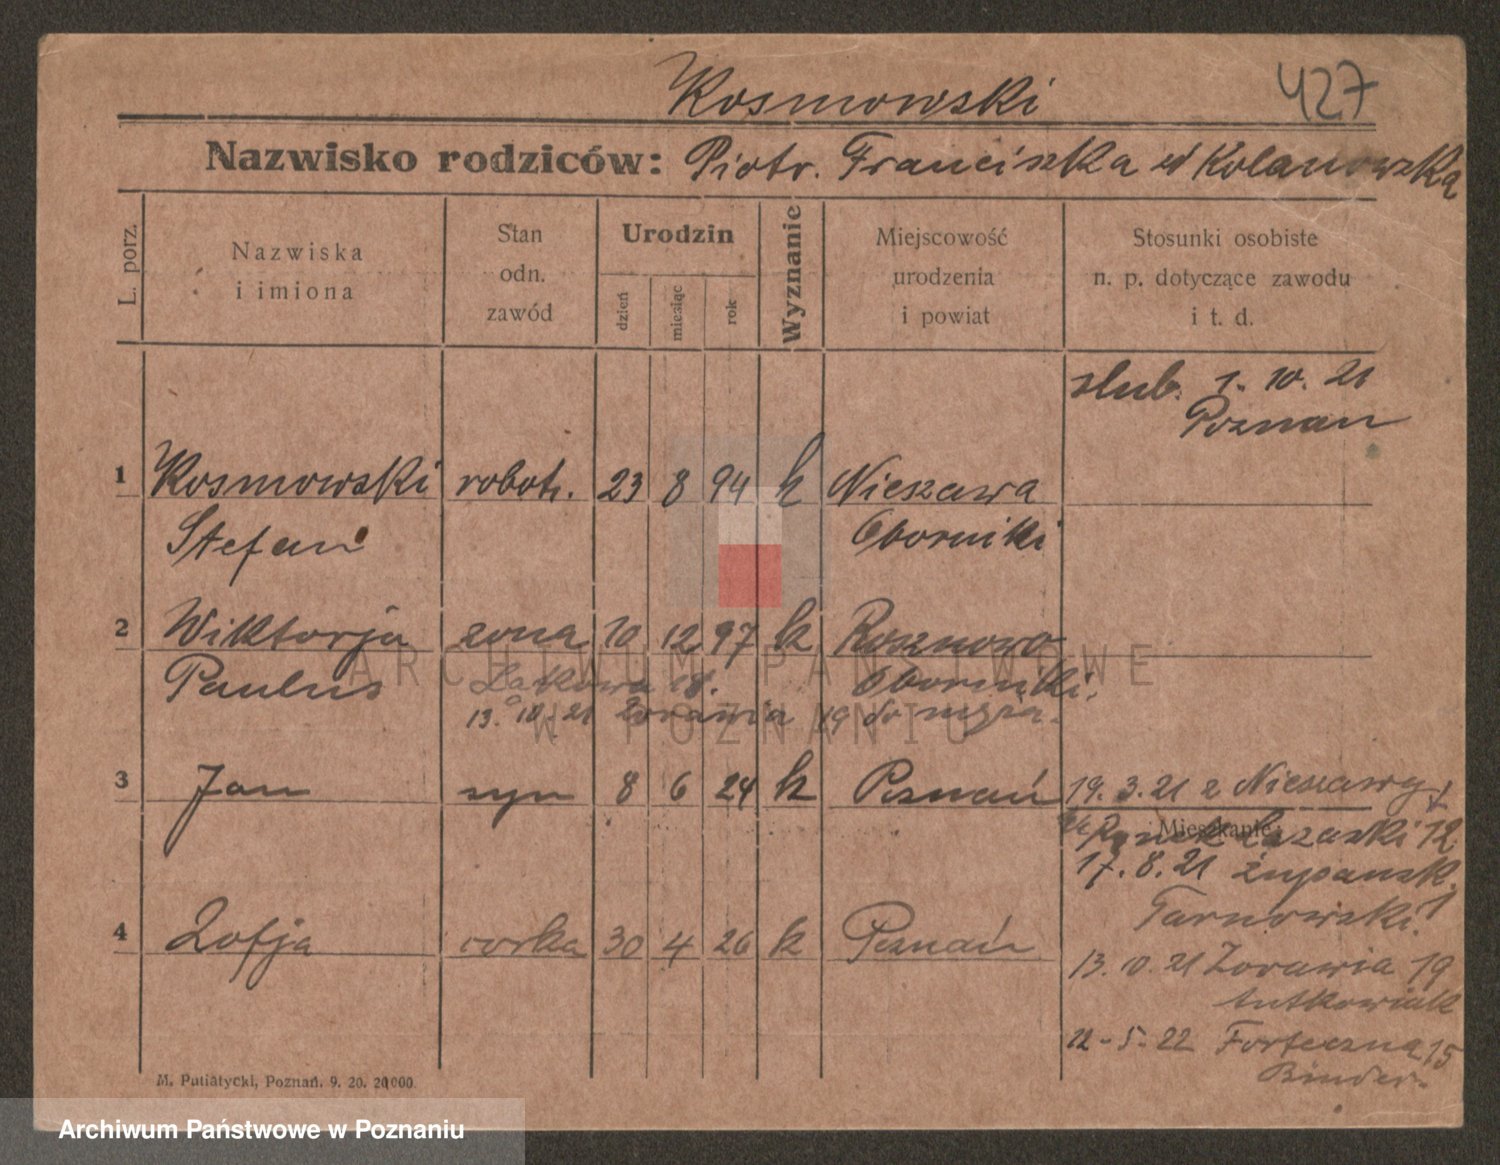 Kosmowski
427
Nazwisko rodziców: Piotr. Franciszka zd Kolanowska
L. porz.
Nazwiska
i imiona
Stan
odn.
zawód
Urodzin
dzień
miesiąc
rok
Wyznanie
Miejscowość
urodzenia
i powiat
Stosunki osobiste
n. p. dotyczące zawodu
i t. d.
slub. 1. 10. 21
Poznan
1 Kosmowski robotn. 23 8 94 k Nieszawa
Stefan Oborniki
2 Wiktorja zona 10 12 97 k Rosznowo
Paulus Łąkowa 18. Oborniki.
13. 10. 21 Żorawia 19
3 Jan syn 8 6 24 k Poznań
19. 3. 21 z Nieszawy
Mieszkanie:
Rynek Łazarski 12
17. 8. 21 Żupansk. 1
Tarnowski
4 Zofja corka 30 4 26 k Poznań
13. 10. 21 Żorawia 19
Antkowiak
12-5-22 Forteczna 15
Binder
M. Putiatycki, Poznań. 9. 20. 20000.
ARCHIWUM PAŃSTWOWE
W POZNANIU
Archiwum Państwowe w Poznaniu